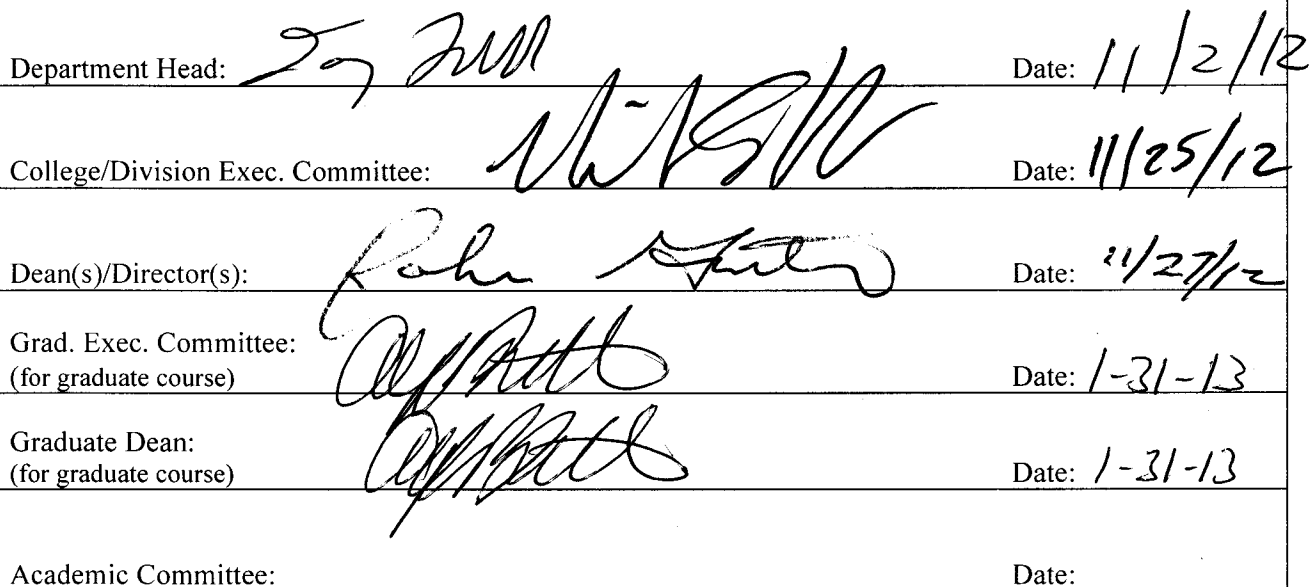 Department Head: Date: 11/2/12
College/Division Exec. Committee: Date: 11/25/12
Dean(s)/Director(s): Date: 11/27/12
Grad. Exec. Committee:
(for graduate course) Date: 1-31-13
Graduate Dean:
(for graduate course) Date: 1-31-13
Academic Committee: Date: